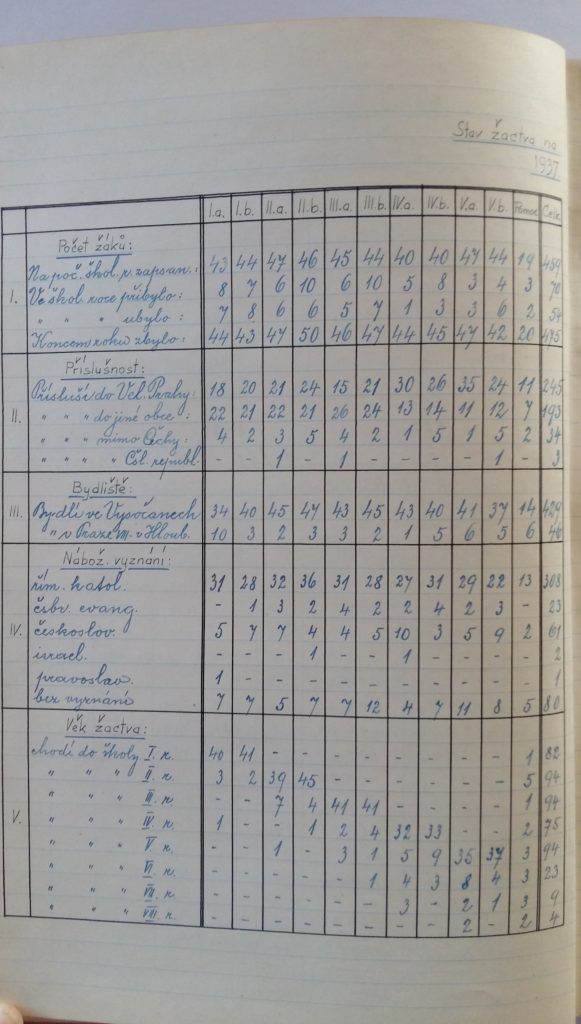 Stav žactva na
1937
I.a. I.b. II.a. II.b. III.a. III.b. IV.a. IV.b. V.a. V.b. Pomoc. Celk.
Počet žáků:
Na poč. škol. r. zapsan.: 43 44 47 46 45 44 40 40 47 44 19 459
I. Ve škol. roce přibylo: 8 7 6 10 6 10 5 8 3 4 3 70
" " " ubylo: 7 8 6 6 5 7 1 3 3 6 2 54
Koncem roku zbylo: 44 43 47 50 46 47 44 45 47 42 20 475
Příslušnost:
Přísluší do Vel. Prahy: 18 20 21 24 15 21 30 26 35 24 11 245
II. " " " do jiné obce: 22 21 22 21 26 24 13 14 11 12 7 193
" " " mimo Čechy: 4 2 3 5 4 2 1 5 1 5 2 34
" " " " Čsl. republ. - - 1 - 1 - - - - 1 - 3
Bydliště:
III. Bydlí ve Vysočanech 34 40 45 47 43 45 43 40 41 37 14 429
" v Praze VIII. v Hloub. 10 3 2 3 3 2 1 5 6 5 6 46
Nábož. vyznání:
řím. katol. 31 28 32 36 31 28 27 31 29 22 13 308
čsbr. evang. - 1 3 2 4 2 2 4 2 3 - 23
IV. českoslov. 5 7 7 4 4 5 10 3 5 9 2 61
israel. - - - 1 - - 1 - - - - 2
pravoslav. 1 - - - - - - - - - - 1
bez vyznání 7 7 5 7 7 12 4 7 11 8 5 80
Věk žactva:
chodí do školy I. r. 40 41 - - - - - - - - 1 82
" " " II. r. 3 2 39 45 - - - - - - 5 94
" " " III. r. - - 7 4 41 41 - - - - 1 94
V. " " " IV. r. 1 - - 1 2 4 32 33 - - 2 75
" " " V. r. - - 1 - 3 1 5 9 35 37 3 94
" " " VI. r. - - - - - 1 4 3 8 4 3 23
" " " VII. r. - - - - - - 3 - 2 1 3 9
" " " VIII. r. - - - - - - - - 2 - 2 4